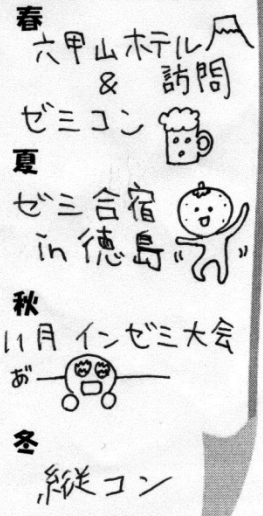 春
六甲山ホテル
& 訪問
ゼミコン
夏
ゼミ合宿
in 徳島
秋
11月 インゼミ大会
お゛
冬
縦コン